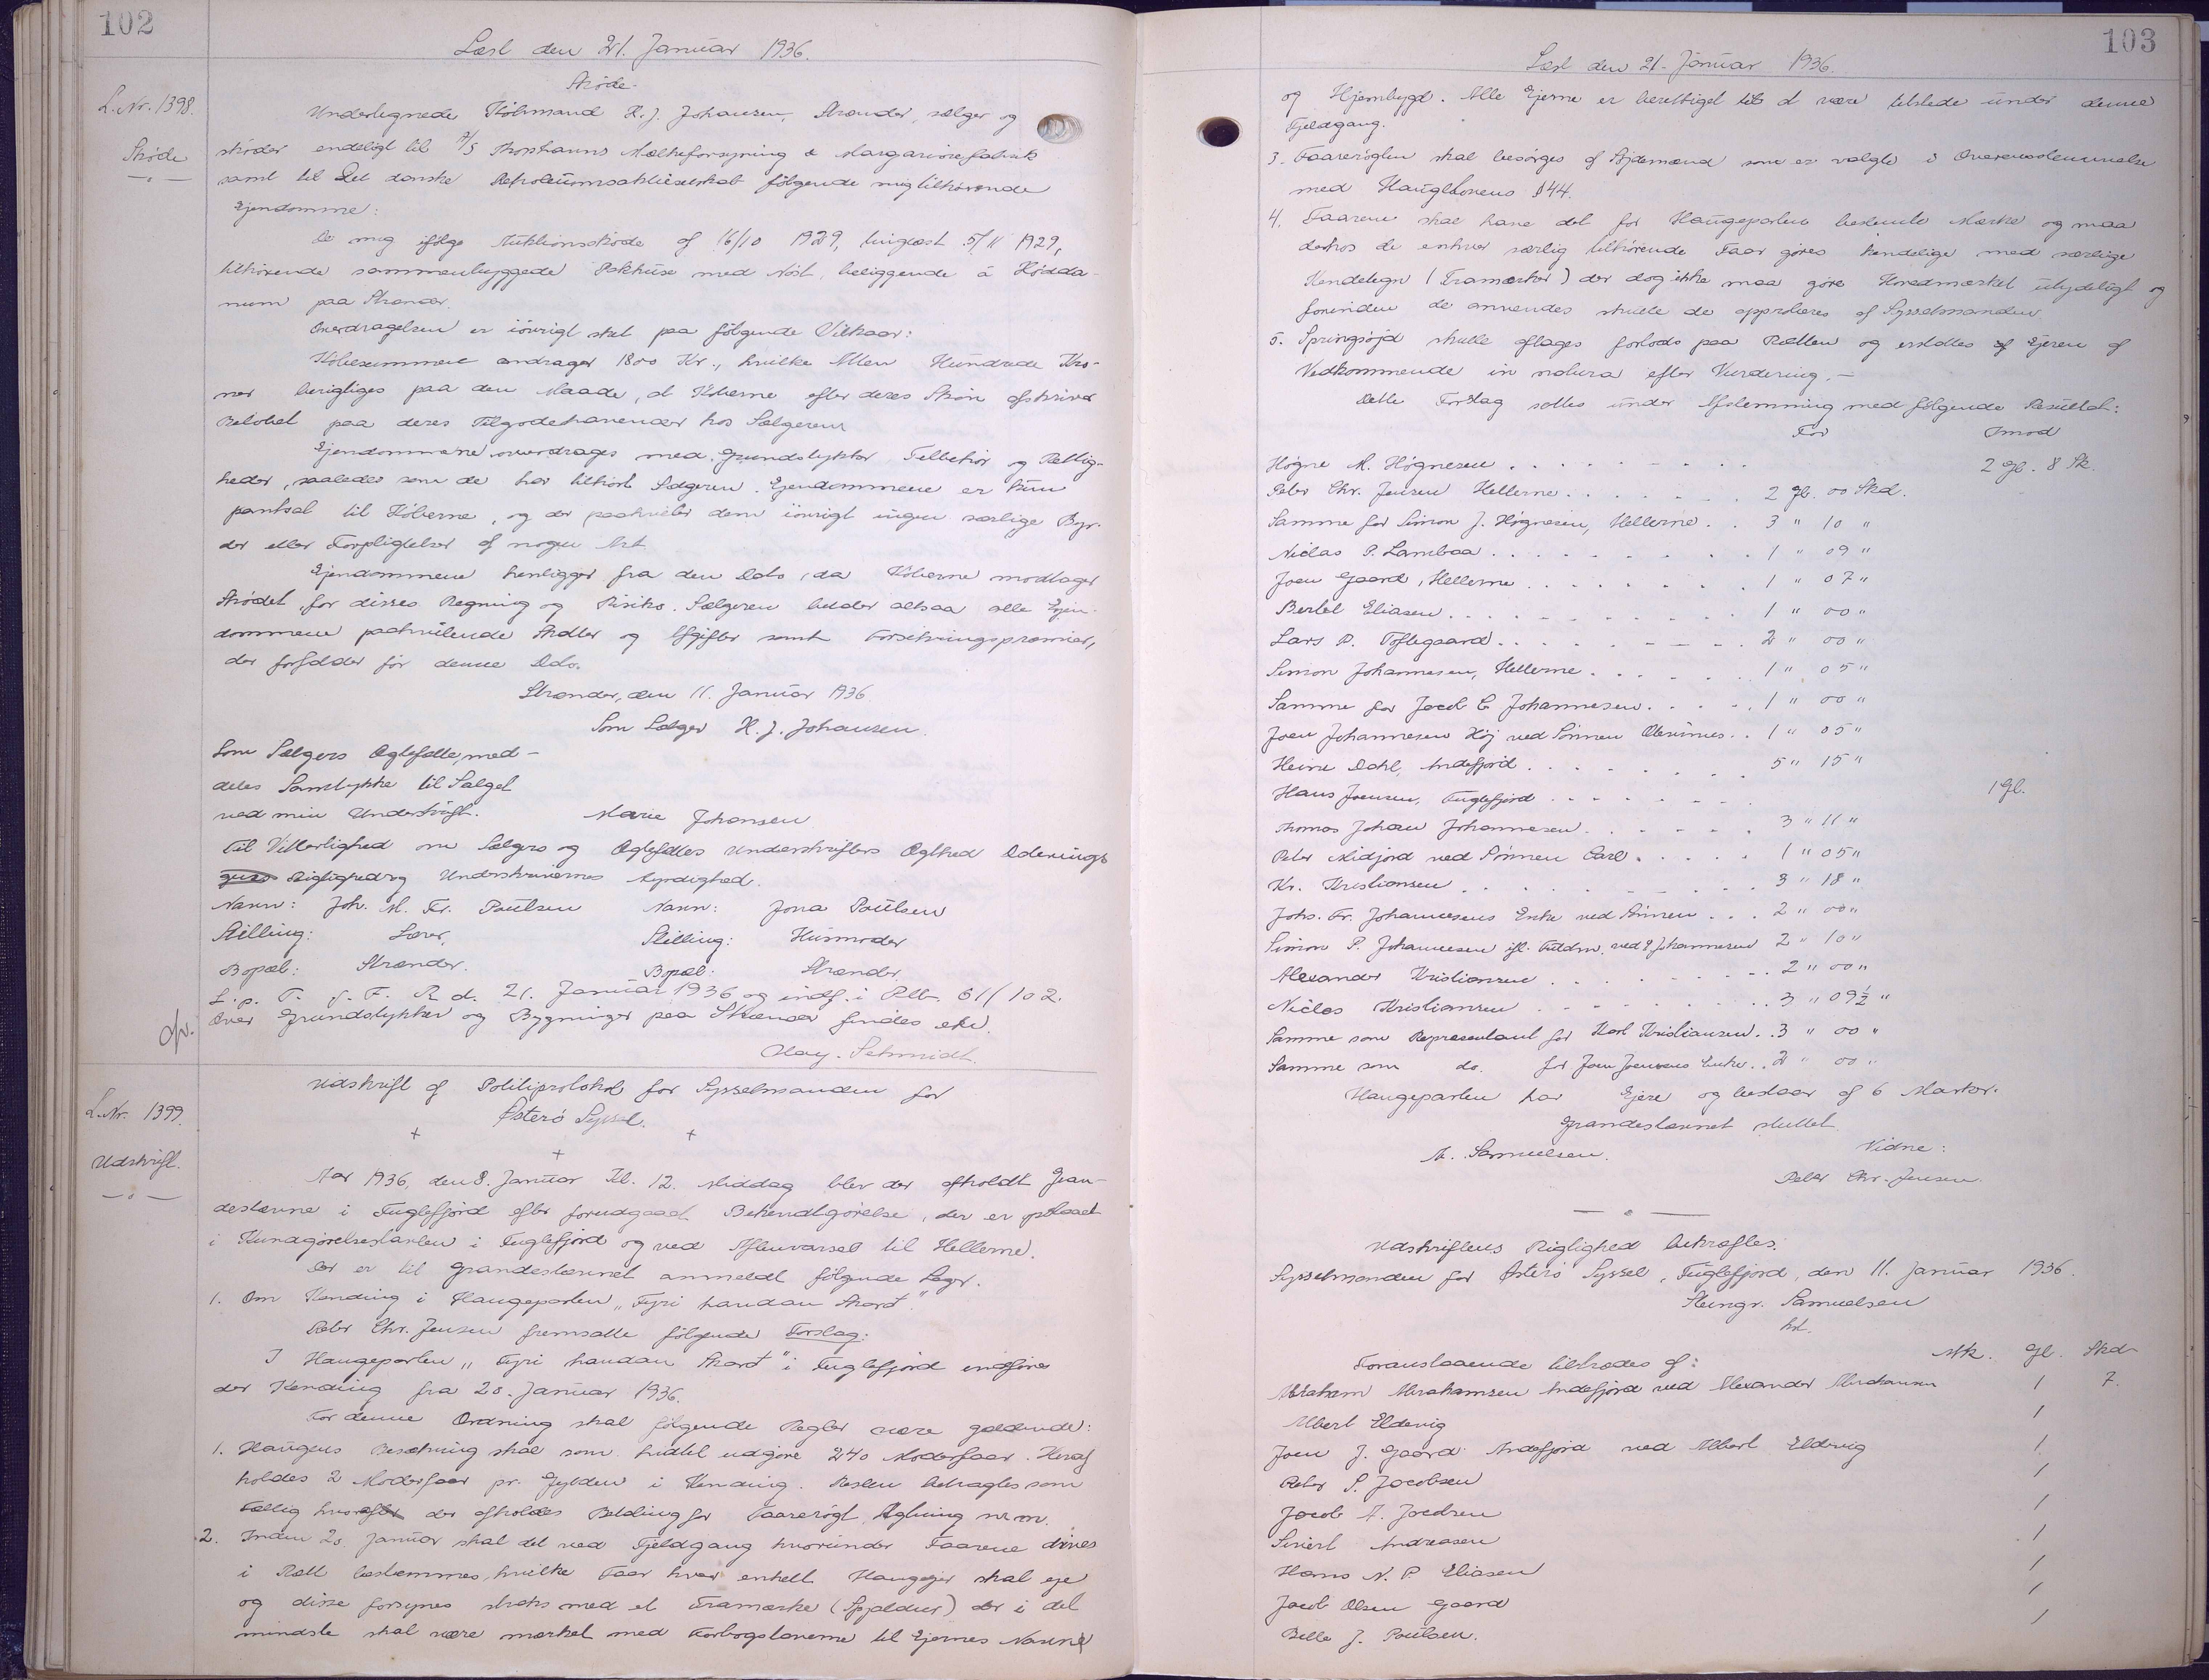 102
Læst den 21. Januar 1936.
L.Nr. 1398.
Skøde
Skøde.
Undertegnede Købmand H. J. Johansen, Strænder, sælger og
skøder endeligt til A/S Thorshavns Mælkeforsyning & Margarinefabrik
samt til Det danske Petroleumsaktieselskab følgende mig tilhørende
Ejendomme:
De mig ifølge Auktionsskøde af 16/10 1929, tinglæst 5/11 1929,
tilhørende sammenbyggede Pakhuse med Nøst, beliggende á Hødda-
num paa Strænder.
Overdragelsen er iøvrigt sket paa følgende Vilkaar:
Købesummen andrager 1800 Kr., hvilke Atten Hundrede Kro-
ner berigtiges paa den Maade, at Køberne efter deres Skøn afskriver
Beløbet paa deres Tilgodehavender hos Sælgeren
Ejendommene overdrages med Grundstykker Tilbehør og Rettig-
heder, saaledes som de har tilhørt Sælgeren. Ejendommene er kun
pantsat til Køberne, og der paahviler dem iøvrigt ingen særlige Byr-
der eller Forpligtelser af nogen Art
Ejendommene henligger fra den Dato, da Køberne modtager
Skødet, for disses Regning og Risiko. Sælgeren betaler altsaa alle Ejen-
dommene paahvilende Skatter og Afgifter samt Forsikringspræmier,
der forfalder før denne Dato.
Strænder, den 11. Januar 1936.
Som Sælger H. J. Johansen.
Som Sælgers Ægtefælle, med-
deles Samtykke til Salget
ved min Underskrift. Marie Johansen
Til Vitterlighed om Sælgers og Ægtefælles Underskrifters Ægthed Daterings
Rigtighed og Underskrivernes Myndighed.
Navn: Joh. M. Fr. Poulsen Navn: Jona Poulsen
Stilling: Lærer, Stilling: Husmoder
Bopæl: Strænder. Bopæl: Strænder
L. p. T. f. F. R d. 21. Januar 1936 og indf. i Rlb. 611 102.
Over Grundstykker og Bygninger paa Strænder findes
Hay. Schmidt.
L.Nr. 1399.
Udskrift.
Udskrift af Politiprotokol for Sysselmanden for
Østerø Syssel.
+ + +
Aar 1936, den 8. Januar Kl. 12. Middag blev der afholdt Gran-
destævne i Fuglefjord efter forudgaaet Bekendtgørelse, der er opslaaet
i Kundgørelsestavlen i Fuglefjord og ved Aftenvarsel til Hellerne.
Der er til Grandestævnet anmeldt følgende Sager.
1. Om Kending i Haugeparten "Fyri handan Skard"
Peter Chr. Jensen fremsatte følgende Forslag:
I Haugeparten "Fyri handan Skard" i Fuglefjord indføres
der Kending fra 20. Januar 1936.
For denne Ordning skal følgende Regler være gældende:
1. Haugens Besætning skal som hidtil udgøre 240 Moderfaar. Heraf
holdes 2 Moderfaar pr. Gylden i Kending. Resten betragtes som
Fællig der afholdes Betaling for Faarerøgt Røgtning m.m.
2. Inden 20. Januar skal det ved Fjeldgang hvorunder Faarene drives
i Rætt bestemmes, hvilke Faar hver enkelt Haugejer skal eje
og disse forsynes straks med et Framærke (Spjeldur) der i det
mindste skal være mærket med Forbogstaverne til Ejernes Navne
103
Læst den 21. Januar 1936.
og Hjembygd. Alle Ejerne er berettiget til at være tilstede under denne
Fjeldgang.
3. Faarerøgten skal besørges af Røjdemænd som er valgte i Overensstemmelse
med Haugelovens §44.
4. Faarene skal have det for Haugeparten bestemte Mærke og maa
derhos de enhver særlig tilhørende Faar gøres kendelige med særlige
Kendetegn (Framærker) der dog ikke maa gøre Hovedmærket utydeligt og
forinden de anvendes skulle de approberes af Sysselmanden
5. Springsøjd skulle aftages forlods paa Rætten og erstattes af Ejeren af
Vedkommende in natura efter Vurdering. —
Dette Forslag sattes under Afstemning med følgende Resultat:
For Imod
Høgne M. Høgnesen 2 Gl. 8 Sk.
Peter Chr. Jensen Hellerne 2 Gl. 00 Skd.
Samme for Simon J. Høgnesen, Hellerne 3 " 10 "
Niclas P. Lambaa 1 " 09 "
Joen Gaard, Hellerne 1 " 07 "
Bertel Eliasen 1 " 00 "
Lars P. Toftegaard 2 " 00 "
Simon Johannesen, Hellerne 1 " 05 "
Samme for Jacob C Johannesen 1 " 00 "
Joen Johannesen Høj ved Sønnen 1 " 05 "
Heine Dahl, Andefjord 5 " 15 "
Hans Joensen, Fuglefjord 1 Gl.
Thomas Johan Johannesen 3 " 11 "
Peter Midjord ved Sønnen Carl 1 " 05 "
Kr. Kristiansen 3 " 18 "
Johs. Fr. Johannesens Enke ved Sønnen 2 " 00 "
Simon P. Johannesen ifl. Fuldm. ved J Johannesen 2 " 10 "
Alexander Kristiansen 2 " 00 "
Niclas Kristiansen 3 " 09 1/2 "
Samme som Repræsentant for Karl Kristiansen 3 " 00 "
Samme som do. for Joen Joensens Enke 2 " 00 "
Haugeparten har Ejere og bestaar af 6 Marker.
Grandestævnet sluttet
M. Samuelsen. Vidne:
Peter Chr. Jensen.
Udskriftens Rigtighed bekræftes.
Sysselmanden for Østerø Syssel, Fuglefjord, den 11. Januar 1936.
Steingr. Samuelsen
kst.
Foranstaaende tiltrædes af: Mk. Gl. Skd
Abraham Abrahamsen Andefjord ved Alexander Abrahamsen 1 7.
Albert Eldevig 1
Joen J. Gaard Andefjord ved Albert Eldevig 1
Peter S. Jacobsen 1
Jacob A. Joensen 1
Sivert Andreasen 1
Hans N. P. Eliasen 1
Jacob Olsen Gaard 1
Belle J. Poulsen. 1